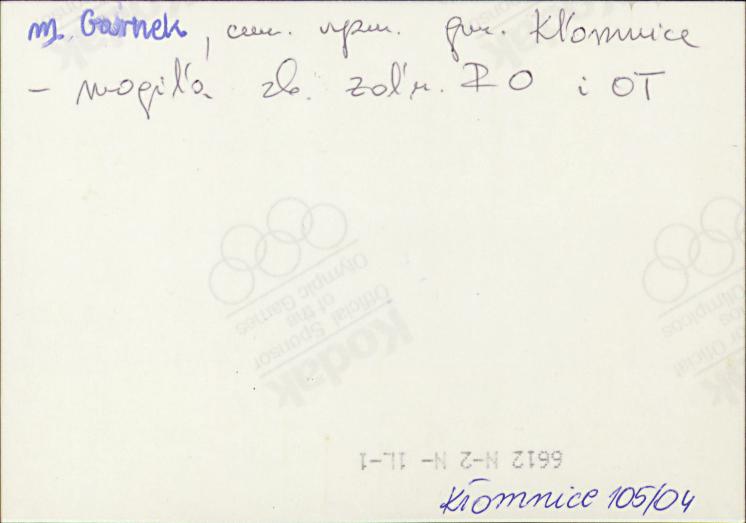 m. Garnek, cm. rzm. gm. Kłomnice
- mogiła zb. żołn. RO i OT
Olympic Games
of the
Official Sponsor
Kodak
Olímpicos
Official
6612 N-2 N- 1L-1
Kłomnice 105/04